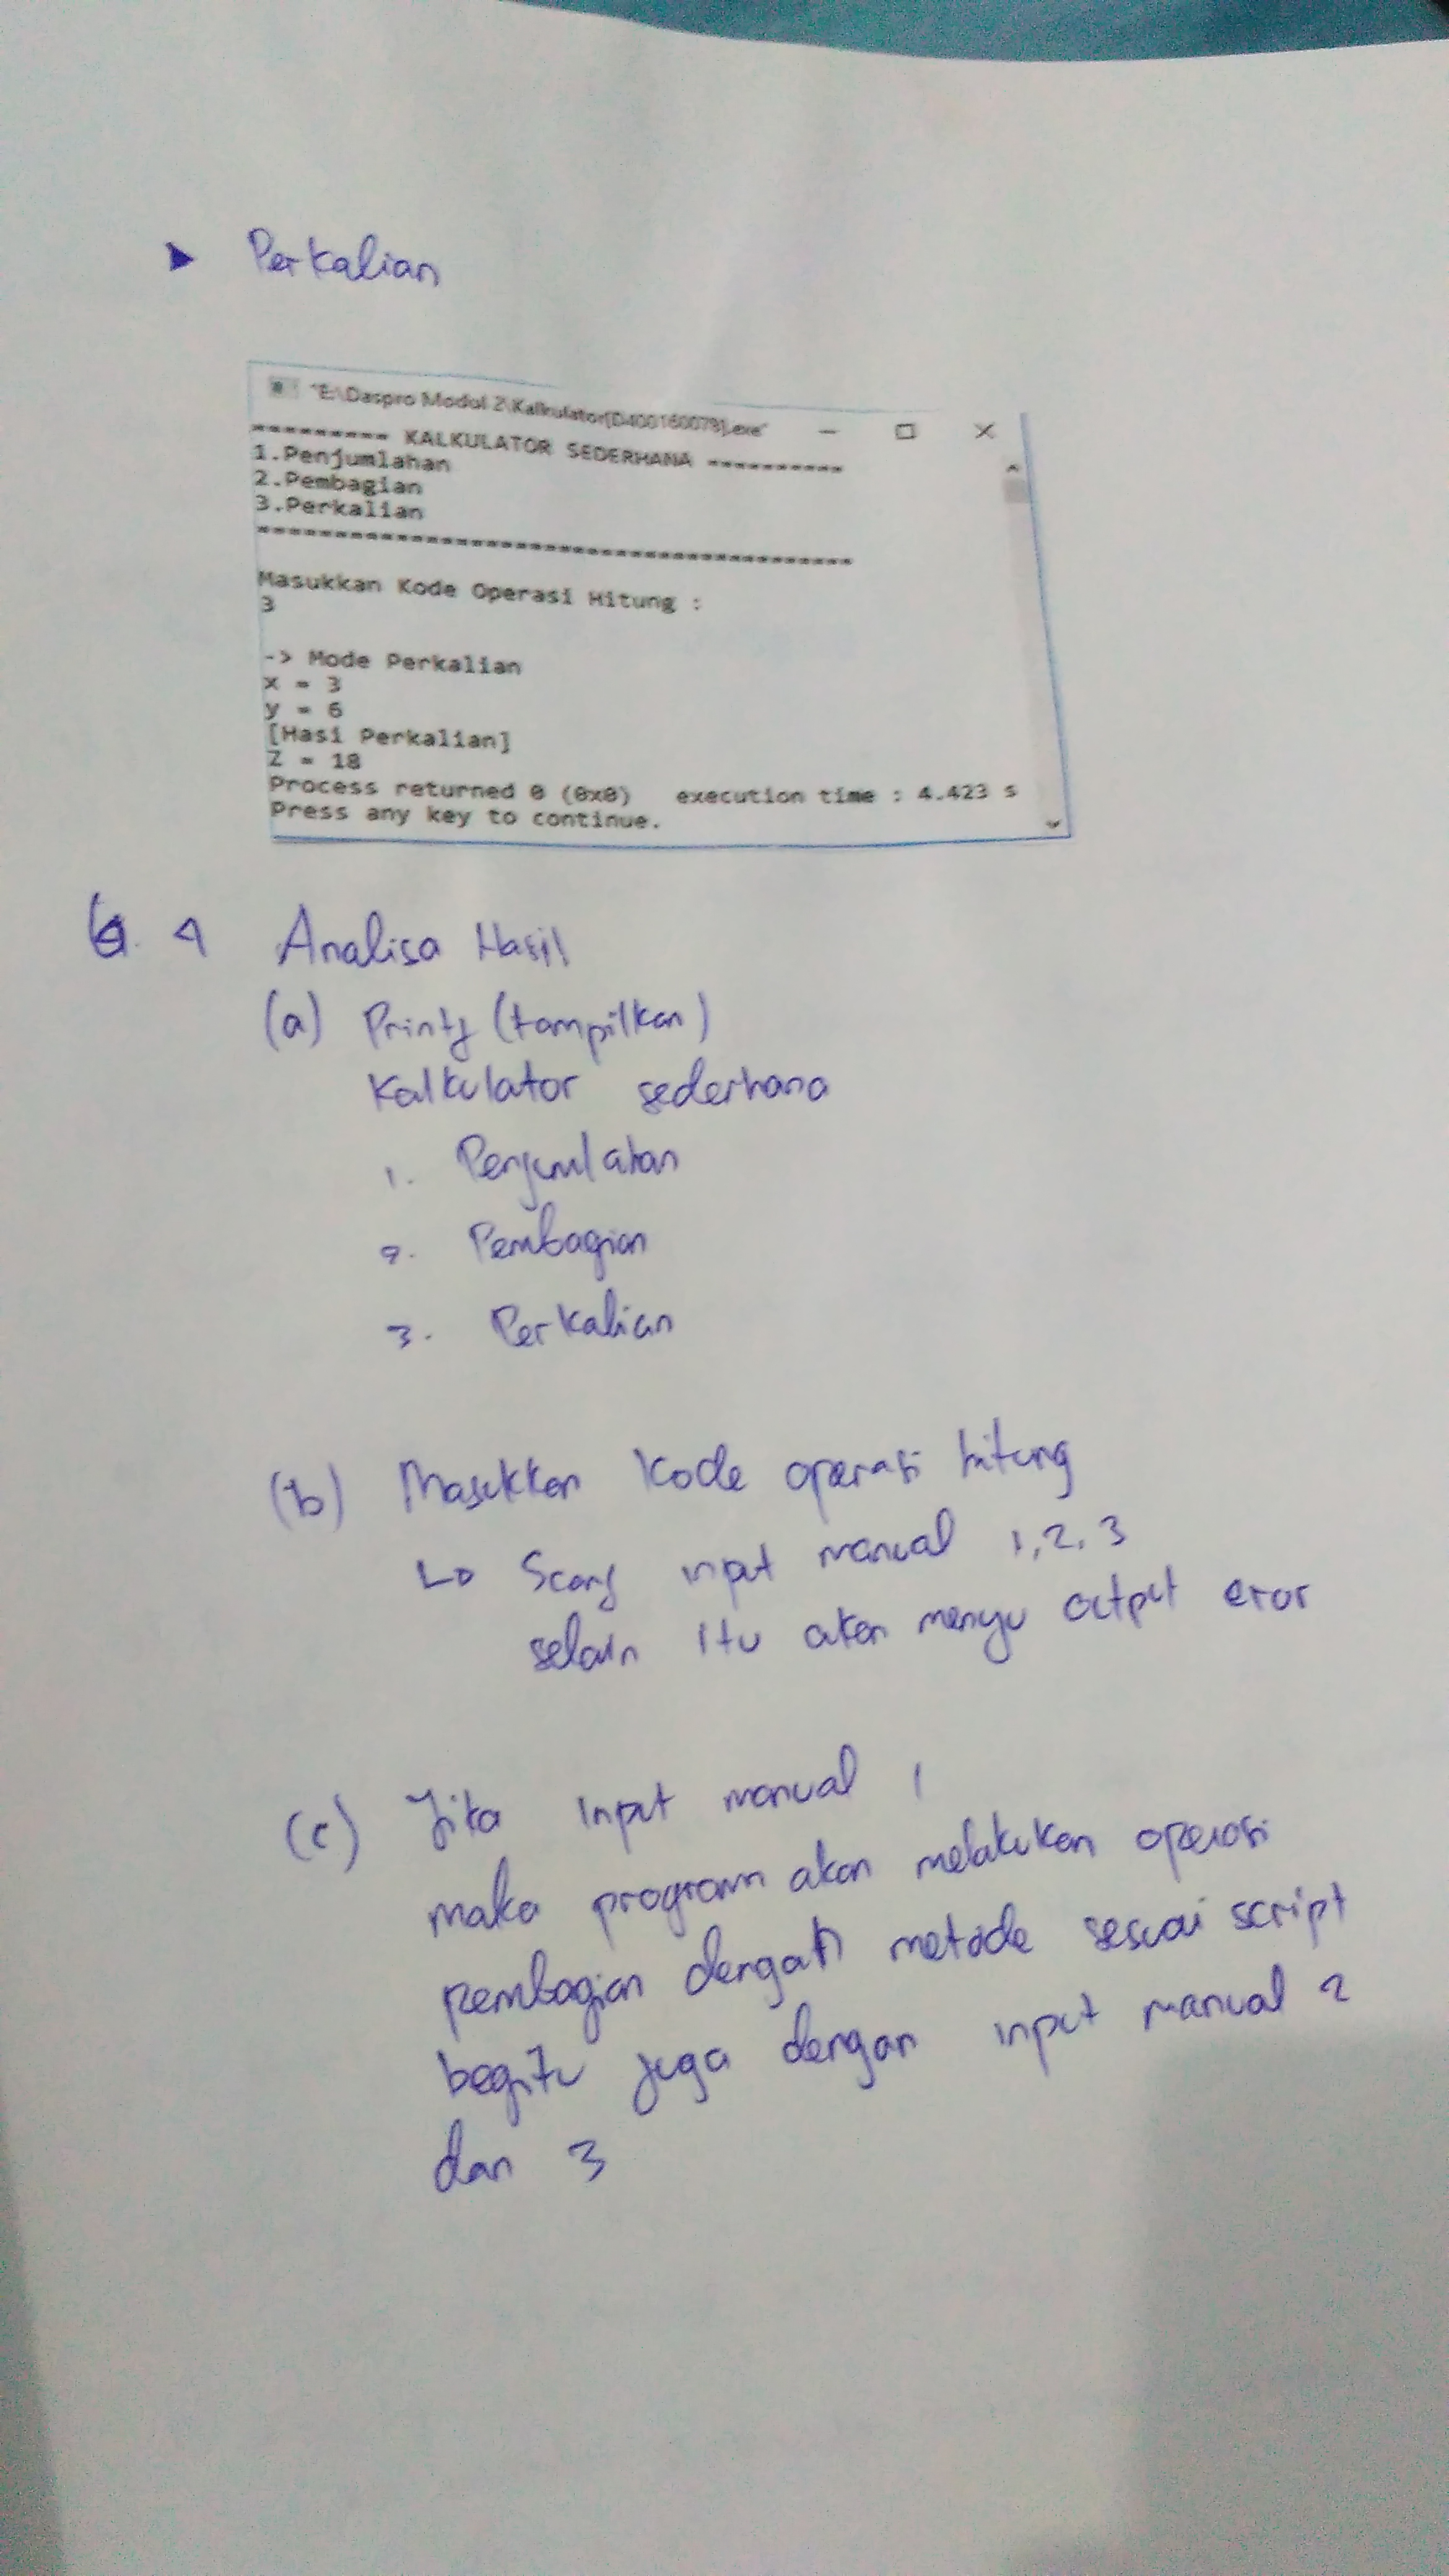 ▶ Perkalian
"E:\Daspro Modul 2\Kalkulator[D400160079].exe"
--------- KALKULATOR SEDERHANA ----------
1.Penjumlahan
2.Pembagian
3.Perkalian
----------------------------------------
Masukkan Kode Operasi Hitung :
3
-> Mode Perkalian
x = 3
y = 6
[Hasi Perkalian]
Z = 18
Process returned 0 (0x0) execution time : 4.423 s
Press any key to continue.
6. 4 Analisa Hasil
(a) Printf (tampilkan)
Kalkulator sederhana
1. Penjumlahan
2. Pembagian
3. Perkalian
(b) Masukkan Kode operasi hitung
↳ Scanf input manual 1, 2, 3
selain itu akan menyu output eror
(c) Jika input manual 1
maka program akan melakukan operasi
pembagian dengan metode sesuai script
begitu juga dengan input manual 2
dan 3